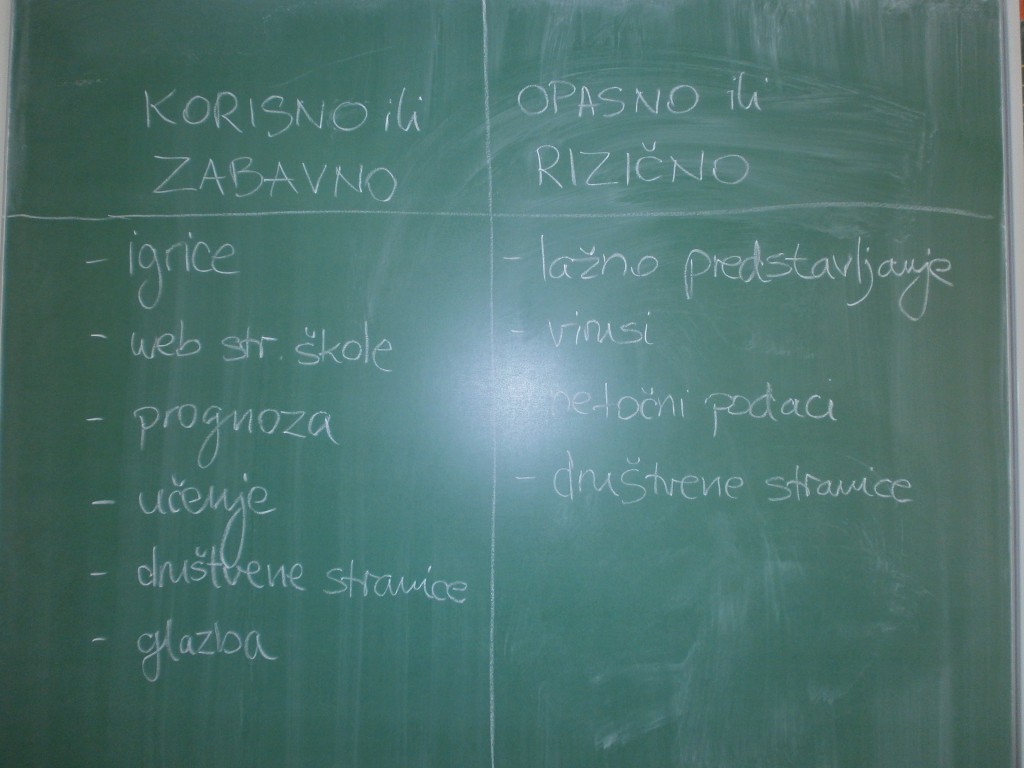 KORISNO ili
ZABAVNO
- igrice
- web str. škole
- prognoza
- učenje
- društvene stranice
- glazba
OPASNO ili
RIZIČNO
- lažno predstavljanje
- virusi
netočni podaci
- društvene stranice